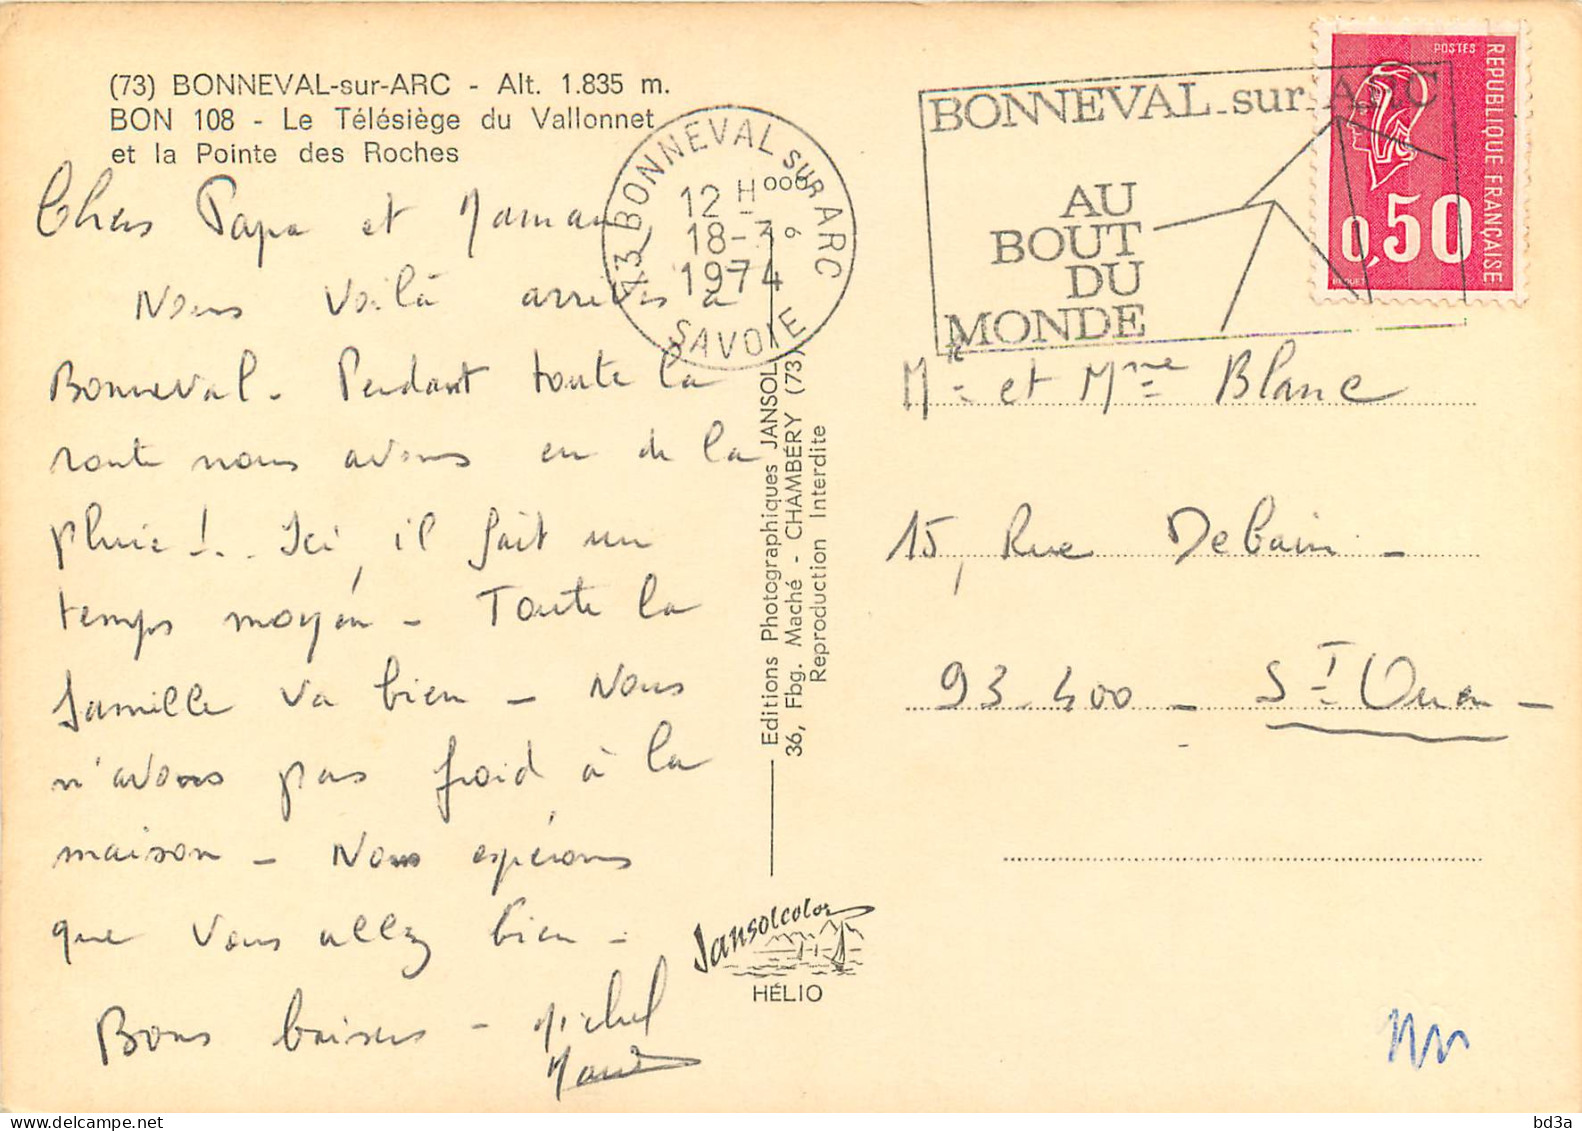 (73) BONNEVAL-sur-ARC - Alt. 1.835 m.
BON 108 - Le Télésiège du Vallonnet
et la Pointe des Roches
Chers Papa et Maman,
Nous voilà arrivés à
Bonneval. Pendant toute la
route nous avons eu de la
pluie !.. Ici, il fait un
temps moyen - Toute la
famille va bien - Nous
n'avons pas froid à la
maison - Nous espérons
que vous allez bien -
Bons baisers - Michel
73 BONNEVAL SUR ARC
12 H 000
18-3
1974
SAVOIE
BONNEVAL-sur-ARC
AU
BOUT
DU
MONDE
POSTES
REPUBLIQUE FRANÇAISE
0,50
BEQUET
Mr et Mme Blanc
15, Rue Debain -
93-400 - St Ouen -
Editions Photographiques JANSOL
36, Fbg. Maché - CHAMBÉRY (73)
Reproduction Interdite
Jansolcolor
HÉLIO
bd3a